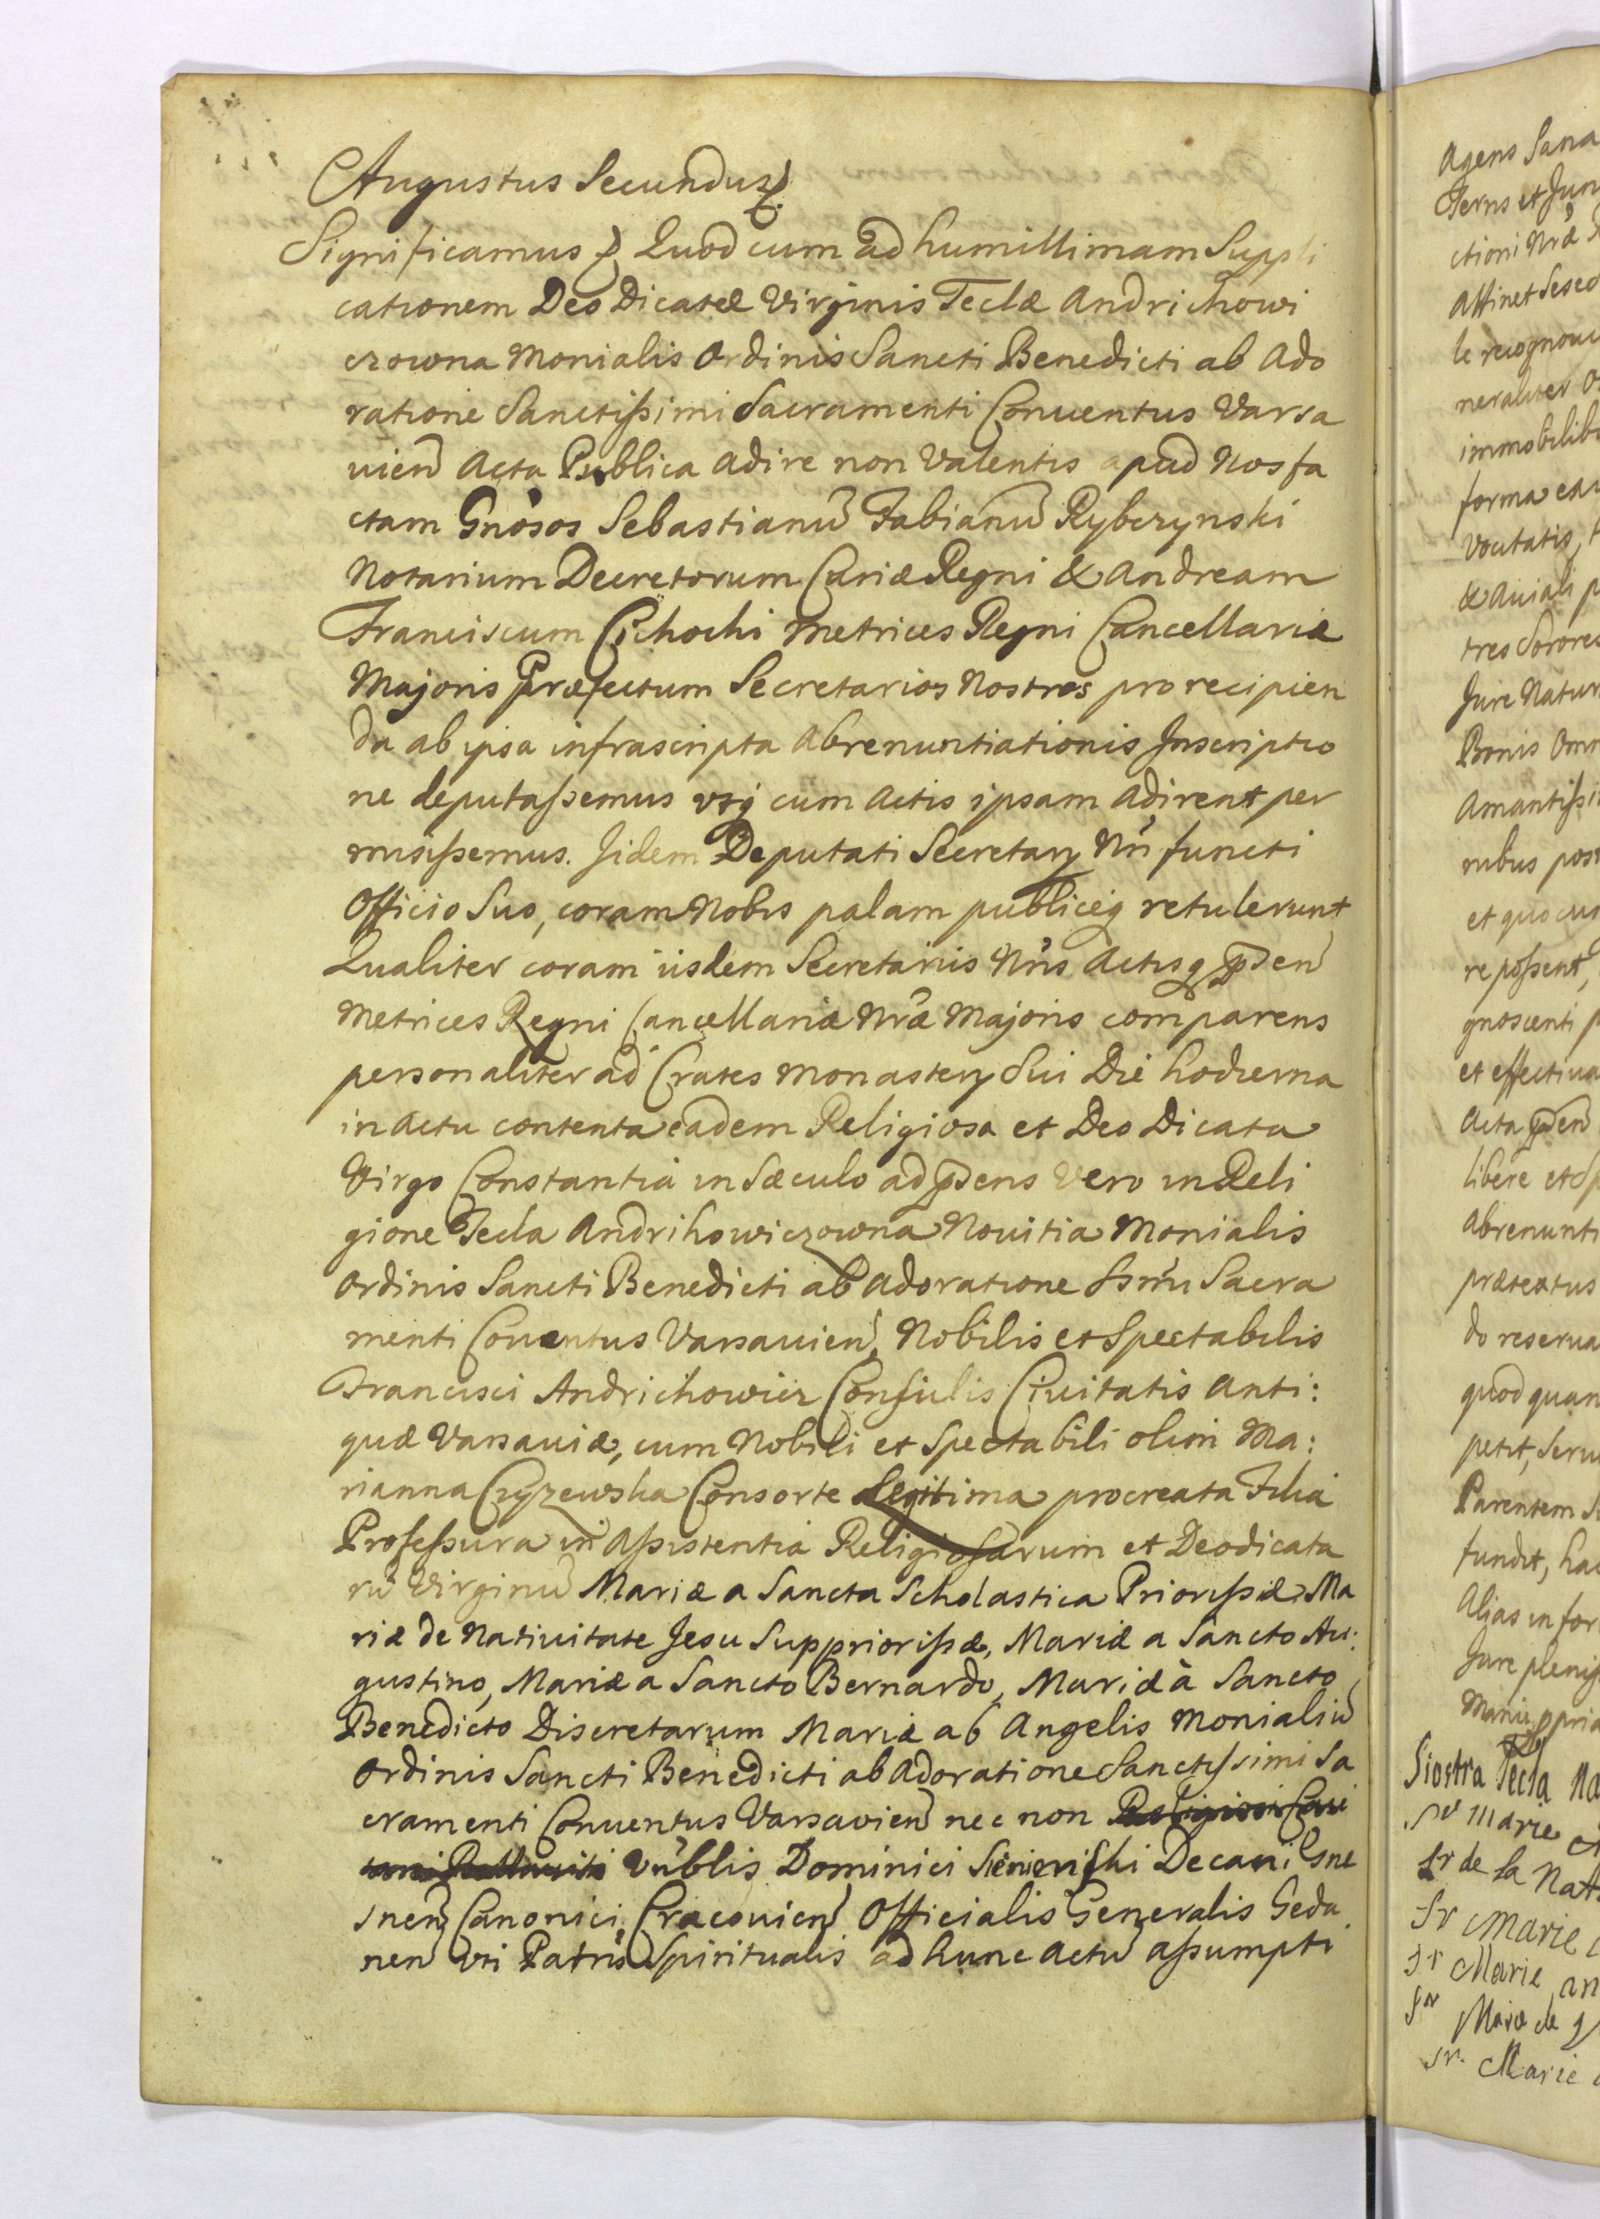 Augustus Secundus
Significamus Quod cum ad humillimam Suppli
cationem Deo Dicatæ Virginis Teclæ Andrichowi
czowna Monialis Ordinis Sancti Benedicti ab Ado
ratione Sanctissimi Sacramenti Conuentus Varsa
uien Acta Publica adire non Valentis apud Nos fa
ctam Gnosos Sebastianū Fabianū Rybczynski
Notarium Decretorum Curiæ Regni & Andream
Franciscum Cichocki Metrices Regni Cancellariæ
Majoris Præfectum Secretarios Nostros pro recipien
da ab ipsa infrascripta Abrenuntiationis Inscriptio
ne deputassemus utq cum Actis ipsam adirent per
misissemus. Iidem Deputati Secretarij Nri functi
Officio Suo, coram Nobis palam publiceq retulerunt
Qualiter coram iisdem Secretariis Nris Actisq pden
Metrices Regni Cancellariæ Nræ Majoris comparens
personaliter ad Crates Monasterij Sui Die hodierna
in Actu contenta eadem Religiosa et Deo Dicata
Virgo Constantia in Sæculo ad pdens Vero in Reli
gione Tecla Andrihowiczowna Nouitia Monialis
Ordinis Sancti Benedicti ab Adoratione Ssmi Sacra
menti Conuentus Varsauien, Nobilis et Spectabilis
Francisci Andrichowicz Consulis Ciuitatis Anti:
quæ Varsauiæ, cum Nobili et Spectabili olim Ma:
rianna Czyzewska Consorte Legitima procreata Filia
Professura in Assistentia Religiosarum et Deodicata
rū Virginū Mariæ a Sancta Scholastica Priorissæ Ma
riæ de Natiuitate Jesu Suppriorissæ, Mariæ a Sancto Au:
gustino, Mariæ a Sancto Bernardo, Mariæ à Sancto
Benedicto Discretarum Mariæ ab Angelis Monialiū
Ordinis Sancti Benedicti ab Adoratione Sanctissimi Sa
cramenti Conuentus Varsavien nec non
Vnblis Dominici Decani Gne
snen Canonici Cracouien Officialis Generalis Geda
nen uti Patris Spiritualis ad hunc Actū assumpti
Agens Sana
Terris et Jun
ctioni Nræ
Attinet Seseo
le recognoui
neraliter
immobilib
forma ea
Vocitatis
& Auiali p
tres Sorores
Jure Natur
Bonis Omn
Amantissi
ribus poss
et quocun
re possent,
gnoscenti p
et effectiua
Acta pden
libere et Sp
Abrenunti
prætextus
do reserua
quod quan
petit, Seru
Parentem S
fundit, ha
Alias in for
Jure pleniss
Manu ppria
Siostra Tecla Na
Sr Marie
Sr de la Nati
Sr Marie
Sr Marie an
Sr Marie de
Sr. Marie